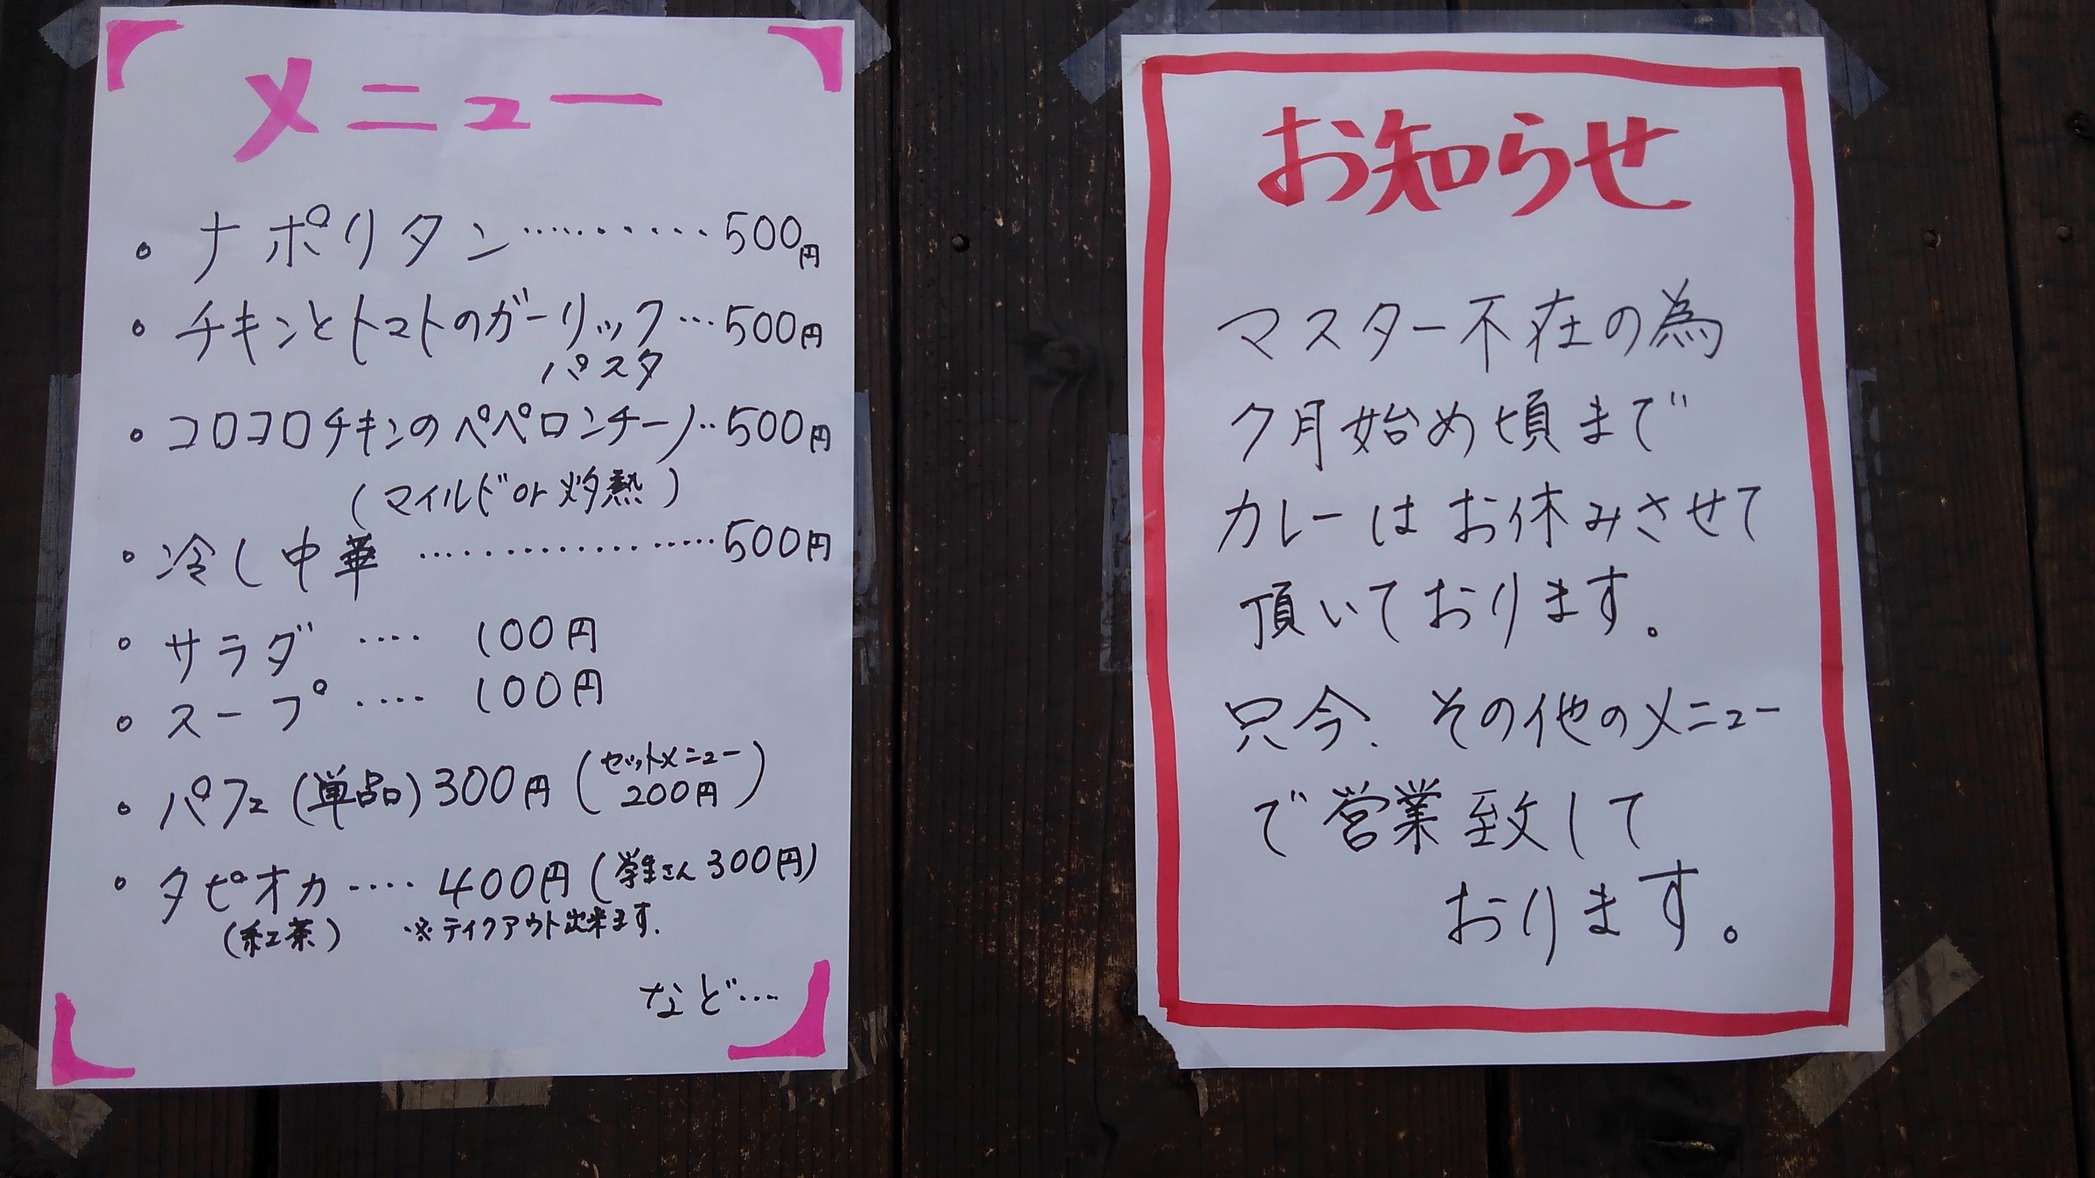 メニュー
。ナポリタン………500円
。チキンとトマトのガーリック…500円
パスタ
。コロコロチキンのペペロンチーノ‥500円
(マイルドor灼熱)
。冷し中華 ………………500円
。サラダ ‥‥ 100円
。スープ ‥‥ 100円
。パフェ(単品)300円(セットメニュー
200円)
。タピオカ‥‥400円(学生さん300円)
(紅茶) ※テイクアウト出来ます.
など…
お知らせ
マスター不在の為
7月始め頃まで
カレーはお休みさせて
頂いております。
只今、その他のメニュー
で営業致して
おります。